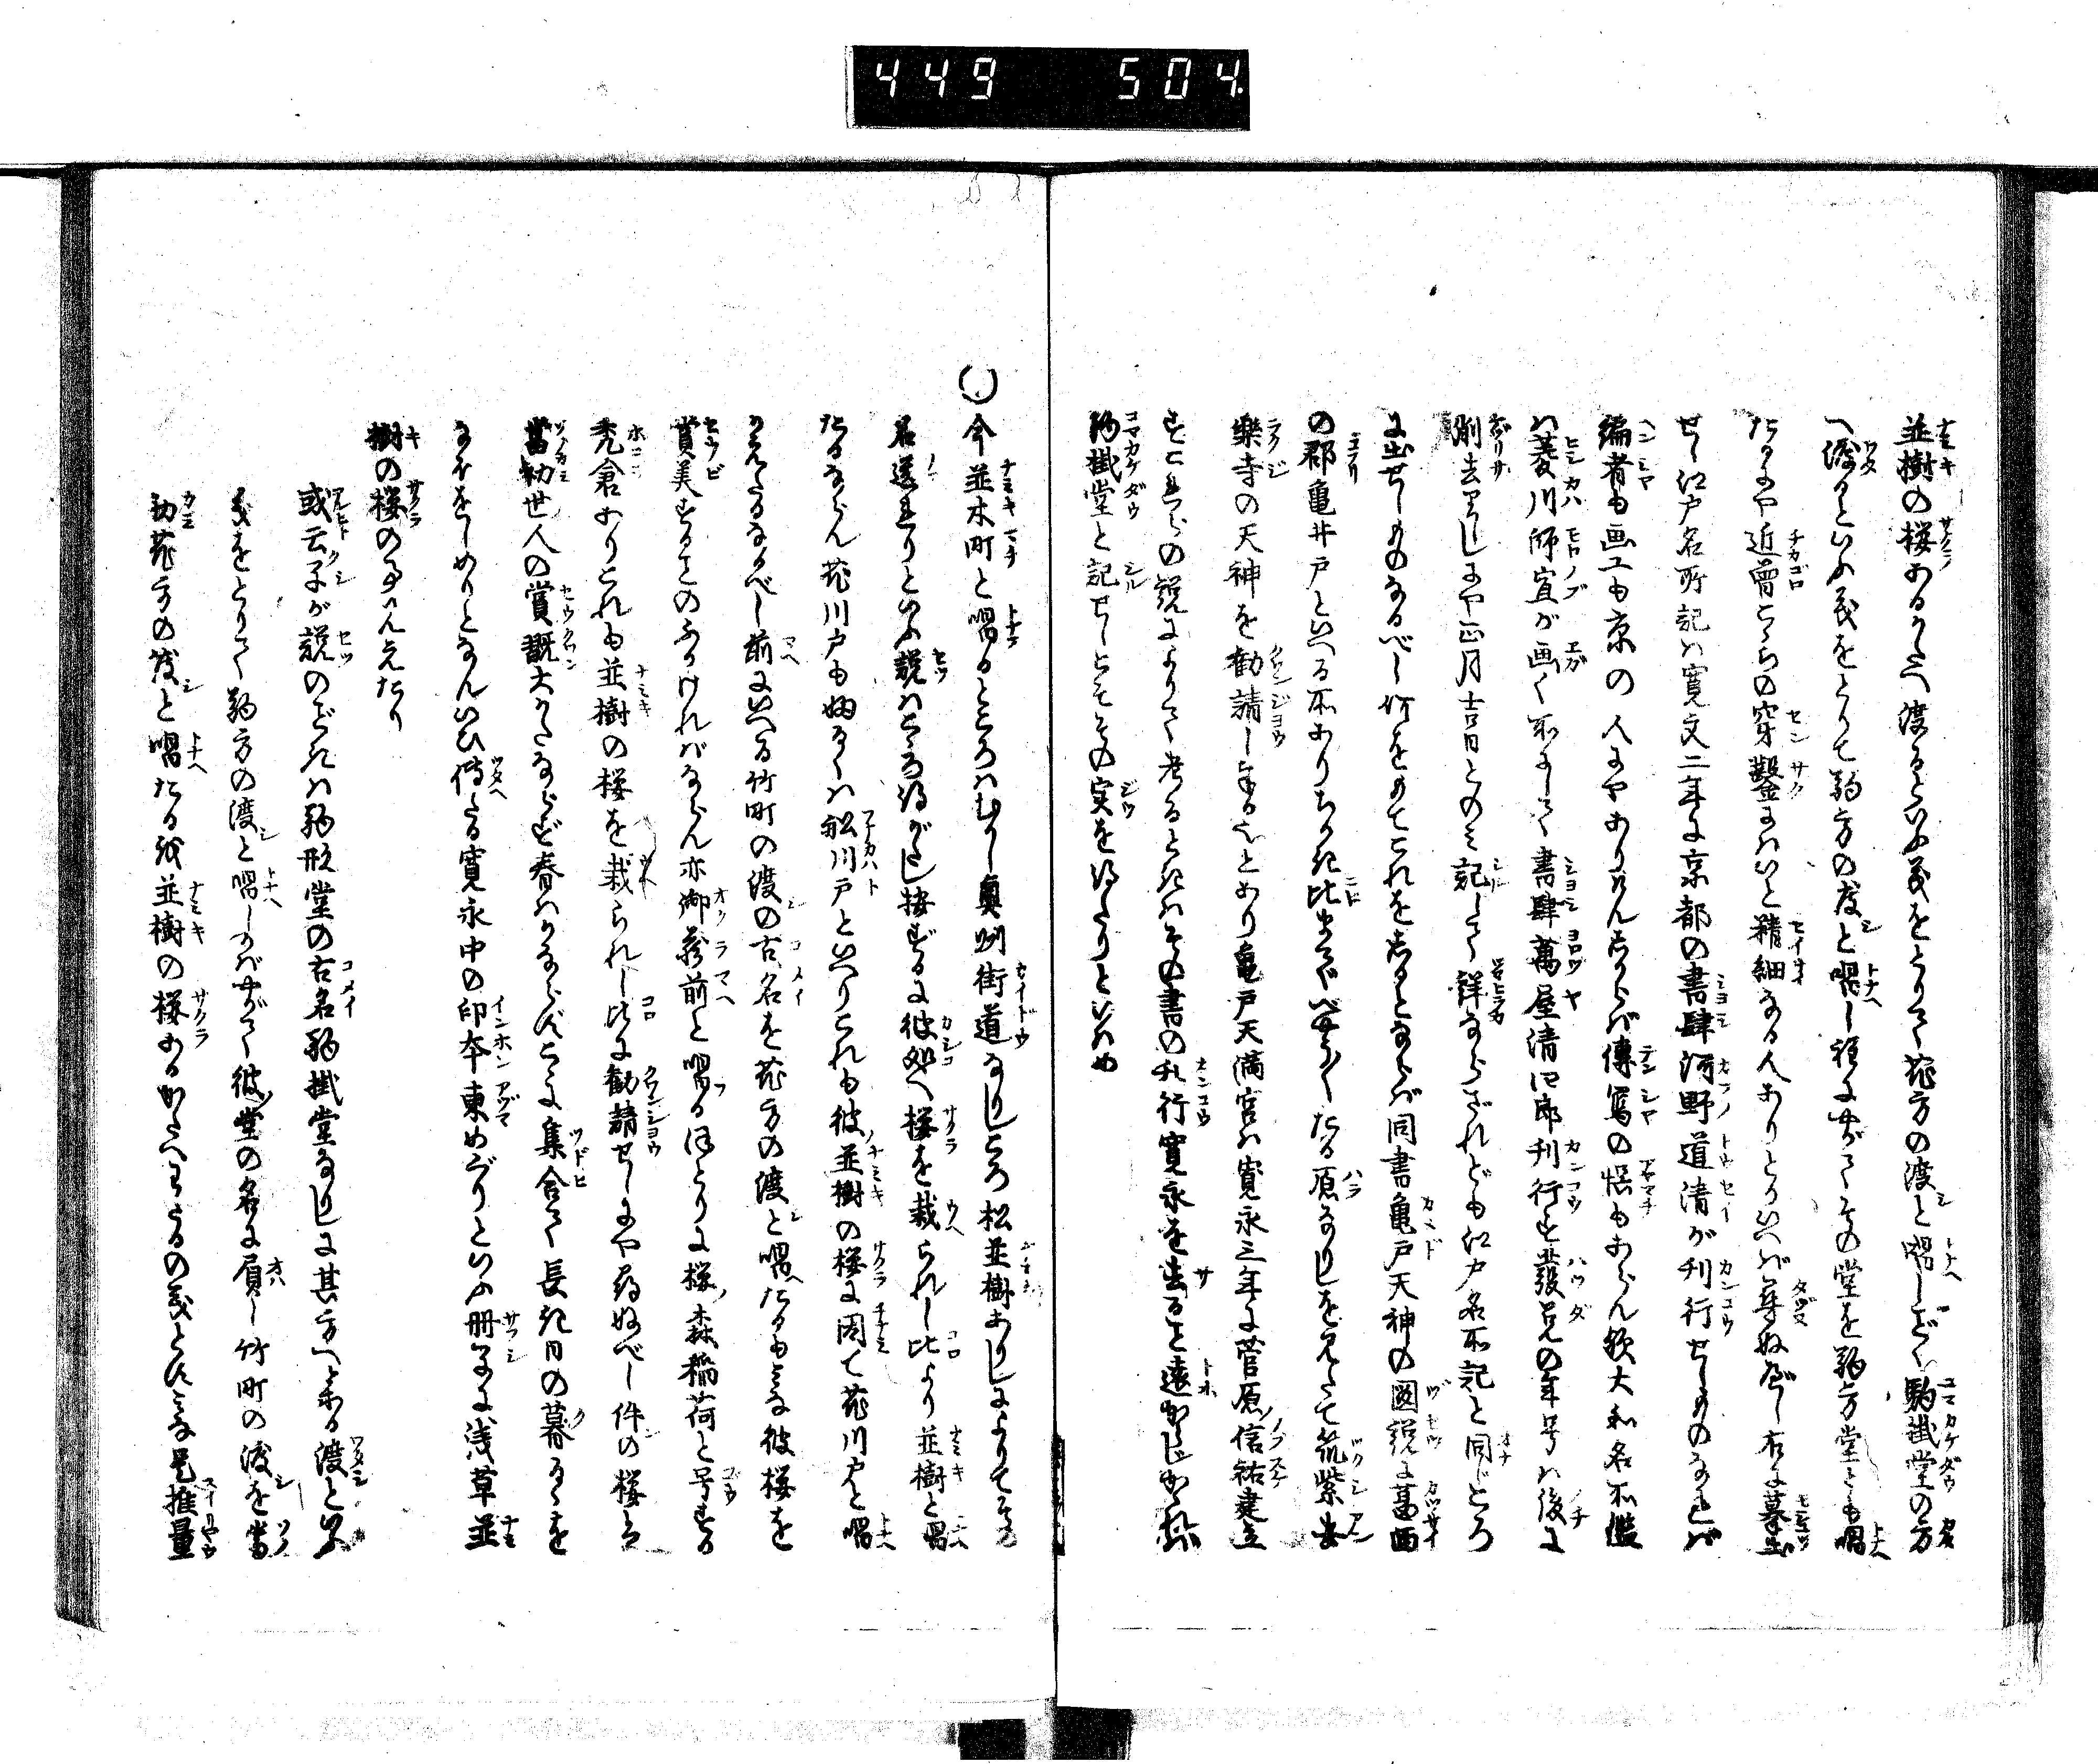 449 504.
並樹の桜あるかたへ渡るといふ義をとりて花方の渡と唱しごとく駒掛堂の方
へ渡るといふ義をとりて駒方の渡と唱し程にやがてその堂を駒方堂とも唱
たるにや近曽これらの穿鑿にはいと精細なる人ありとりいへば尋ぬべし右に摹出
せし江戸名所記は寛文二年に京都の書肆河野道清が刊行せしものなれば
編者も画工も京の人にやありけんしからば傳写の悞もあらん歟大和名所鑑
は菱川師宣が画く所にして書肆萬屋清四郎刊行す發兌の年号は後に
削去りしにや正月吉日とのみ記して詳ならざれども江戸名所記と同じころ
に出せしものなるべし何をもてこれをしるとならば同書亀戸天神の圖説に葛西
の郡亀井戸といへる所ありちかき比まではべうべうたる原なりしを見たて筑紫安
樂寺の天神を勧請し奉る也とあり亀戸天満宮は寛永三年に菅原信祐建立
すこれらの説によりて考るときはその書の刊行寛永を去ること遠からじかゝれば
駒掛堂と記せしこそその実を得たりといはめ
○今並木町と唱るところはむかし奥州街道なりしころ松並樹ありしによりてその
名遺れりといふ説はこゝろ得がたし按ずるに彼処へ桜を栽られし比より並樹と唱
たるならん花川戸も始めは舩川戸といへりこれも彼並樹の桜に因て花川戸と唱
かえたるなるべし前にいへる竹町の渡の古名を花方の渡と唱へたるもみな彼桜を
賞美することのふかければならん亦御藏前と唱るほとりに桜森稲荷と号する
禿倉ありこれも並樹の桜を栽られし比に勧請せしにや尋ぬべし件の桜は
當初世人の賞翫大かたならず春はかならずこゝに集合て長き日の暮るゝを
なおをしめりとなんいひ傳たる寛永中の印本東めぐりといふ冊子に浅草並
樹の桜の事はんえたり
或云子が説のごときは駒形堂の古名駒掛堂なりしに其方へ来る渡といふ
義をとりて駒方の渡と唱しかばやがて彼堂の名に屓し竹町の渡を當
初花方の渡と唱たる彼並樹の桜あるかたへわたるの義とはみな是推量